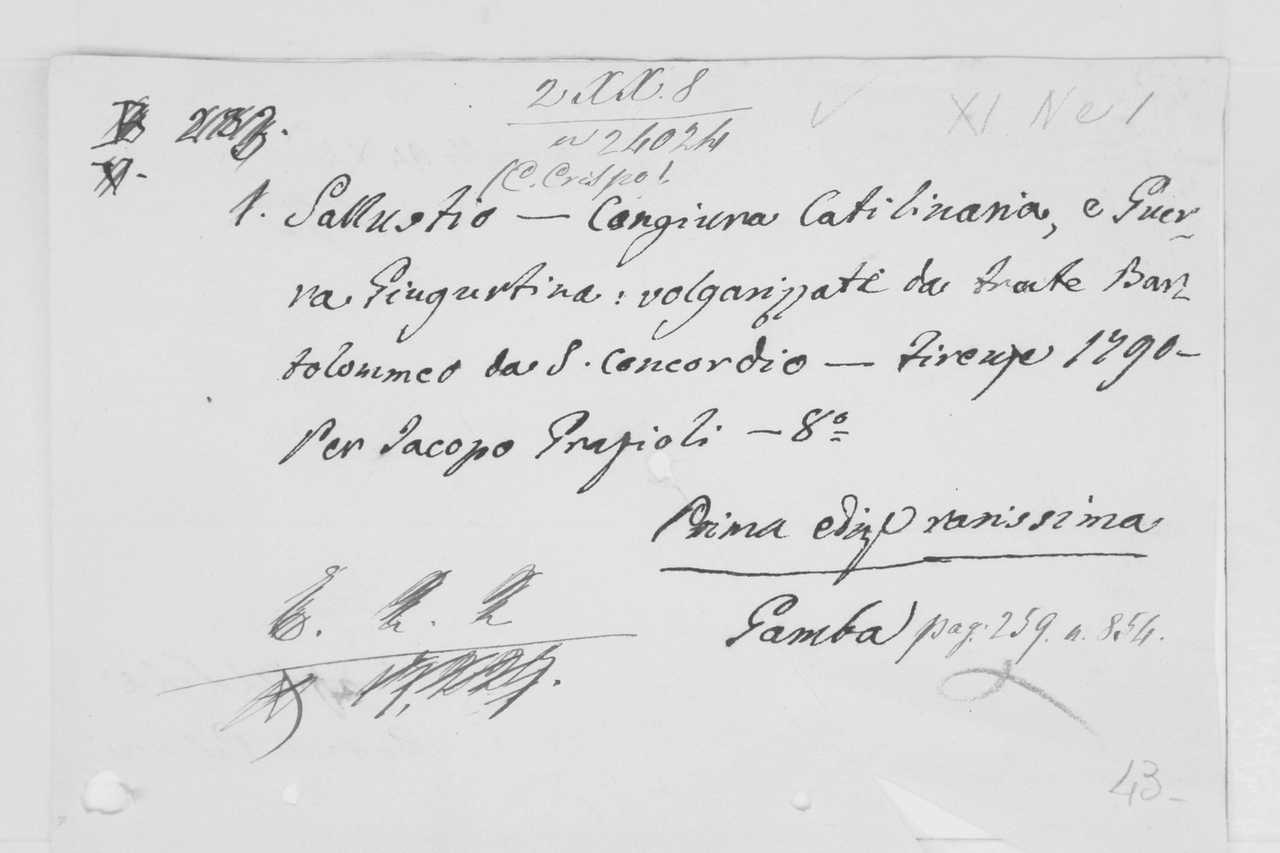 2 XX. 8
XI. Ne 1
n 24024
(C. Crispo)
1. Sallustio — Congiura Catilinaria, e Guer-
ra Giugurtina: volgarizzate da frate Bar-
tolommeo da S. Concordio — Firenze 1790-
Per Jacopo Grazioli — 8º
Prima ediz rarissima
Gamba) pag. 259. n. 854.
43-